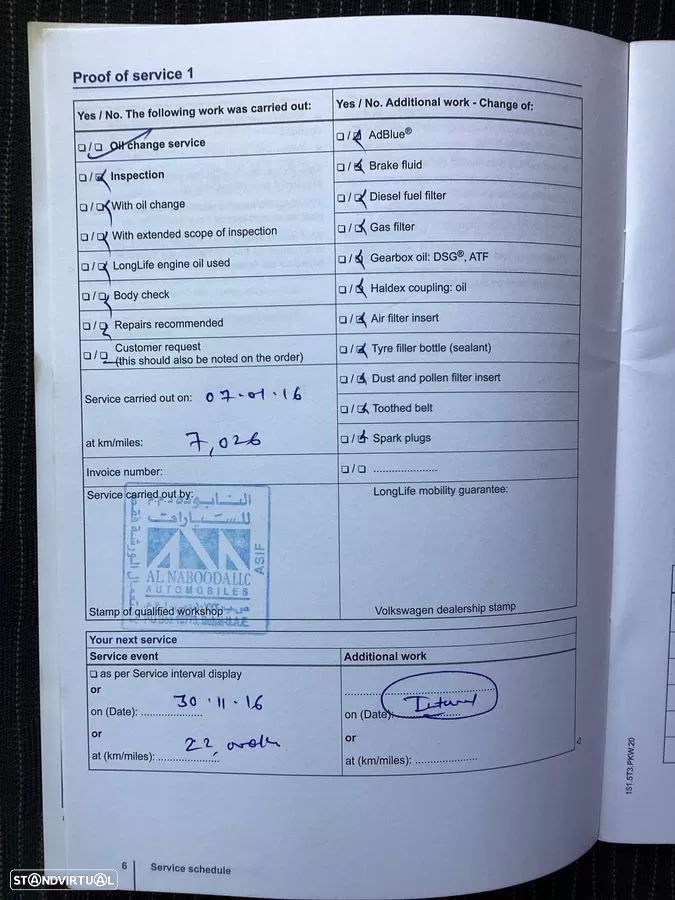 Proof of service 1
Yes / No. The following work was carried out:
☐ / ☐ Oil change service
☐ / ☐ Inspection
☐ / ☐ With oil change
☐ / ☐ With extended scope of inspection
☐ / ☐ LongLife engine oil used
☐ / ☐ Body check
☐ / ☐ Repairs recommended
☐ / ☐ Customer request
(this should also be noted on the order)
Service carried out on: 07-01-16
at km/miles: 7,026
Invoice number:
Service carried out by:
النابوده
للسيارات
AL NABOODA LLC
AUTOMOBILES
ASIF
Stamp of qualified workshop
Yes / No. Additional work - Change of:
☐ / ☐ AdBlue®
☐ / ☐ Brake fluid
☐ / ☐ Diesel fuel filter
☐ / ☐ Gas filter
☐ / ☐ Gearbox oil: DSG®, ATF
☐ / ☐ Haldex coupling: oil
☐ / ☐ Air filter insert
☐ / ☐ Tyre filler bottle (sealant)
☐ / ☐ Dust and pollen filter insert
☐ / ☐ Toothed belt
☐ / ☐ Spark plugs
☐ / ☐ .....................
LongLife mobility guarantee:
Volkswagen dealership stamp
Your next service
Service event
☐ as per Service interval display
or
on (Date): 30-11-16
or
at (km/miles): 22,
Additional work
on (Date):
or
at (km/miles): .....................
6 Service schedule
151.5T3.PKW.20
STANDVIRTUAL